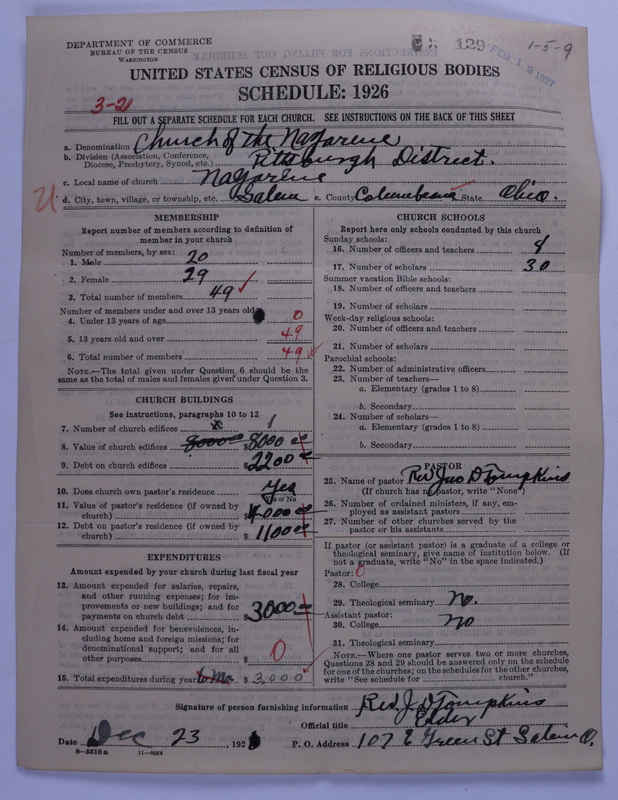 DEPARTMENT OF COMMERCE
BUREAU OF THE CENSUS
WASHINGTON
129
FEB 12 1927
1-5-9
UNITED STATES CENSUS OF RELIGIOUS BODIES
SCHEDULE: 1926
3-21
FILL OUT A SEPARATE SCHEDULE FOR EACH CHURCH. SEE INSTRUCTIONS ON THE BACK OF THIS SHEET
a. Denomination Church of the Nazarene
b. Division (Association, Conference, Diocese, Presbytery, Synod, etc.) Pittsburgh District.
c. Local name of church Nazarene
d. City, town, village, or township, etc. Salem e. County Columbeana State Ohio.
MEMBERSHIP
Report number of members according to definition of
member in your church
Number of members, by sex:
1. Male 20
2. Female 29
3. Total number of members 49
Number of members under and over 13 years old
4. Under 13 years of age 0
5. 13 years old and over 49
6. Total number of members 49
NOTE.—The total given under Question 6 should be the
same as the total of males and females given under Question 3.
CHURCH BUILDINGS
See instructions, paragraphs 10 to 12
7. Number of church edifices 1
8. Value of church edifices 8000 00 $ 8000 00
9. Debt on church edifices $ 2200 00
10. Does church own pastor's residence Yes
Yes or No
11. Value of pastor's residence (if owned by
church) $ 4000 00
12. Debt on pastor's residence (if owned by
church) $ 1100 00
EXPENDITURES
Amount expended by your church during last fiscal year
13. Amount expended for salaries, repairs,
and other running expenses; for im-
provements or new buildings; and for
payments on church debt 3000 00
14. Amount expended for benevolences, in-
cluding home and foreign missions; for
denominational support; and for all
other purposes $ 0
15. Total expenditures during year $ 3,000
CHURCH SCHOOLS
Report here only schools conducted by this church
Sunday schools:
16. Number of officers and teachers 8
17. Number of scholars 30
Summer vacation Bible schools:
18. Number of officers and teachers
19. Number of scholars
Week-day religious schools:
20. Number of officers and teachers
21. Number of scholars
Parochial schools:
22. Number of administrative officers
23. Number of teachers—
a. Elementary (grades 1 to 8)
b. Secondary
24. Number of scholars—
a. Elementary (grades 1 to 8)
b. Secondary
PASTOR
25. Name of pastor Rev Jno D Tompkins
(If church has no pastor, write "None")
26. Number of ordained ministers, if any, em-
ployed as assistant pastors
27. Number of other churches served by the
pastor or his assistants
If pastor (or assistant pastor) is a graduate of a college or
theological seminary, give name of institution below. (If
not a graduate, write "No" in the space indicated.)
Pastor: 0
28. College
29. Theological seminary No.
Assistant pastor:
30. College No
31. Theological seminary
NOTE.—Where one pastor serves two or more churches,
Questions 28 and 29 should be answered only on the schedule
for one of the churches; on the schedules for the other churches,
write "See schedule for church."
Signature of person furnishing information Rev. J. D Tompkins
Official title Elder
Date Dec 23, 1926 P. O. Address 107 E Green St Salem O.
8-5518a 11-9054